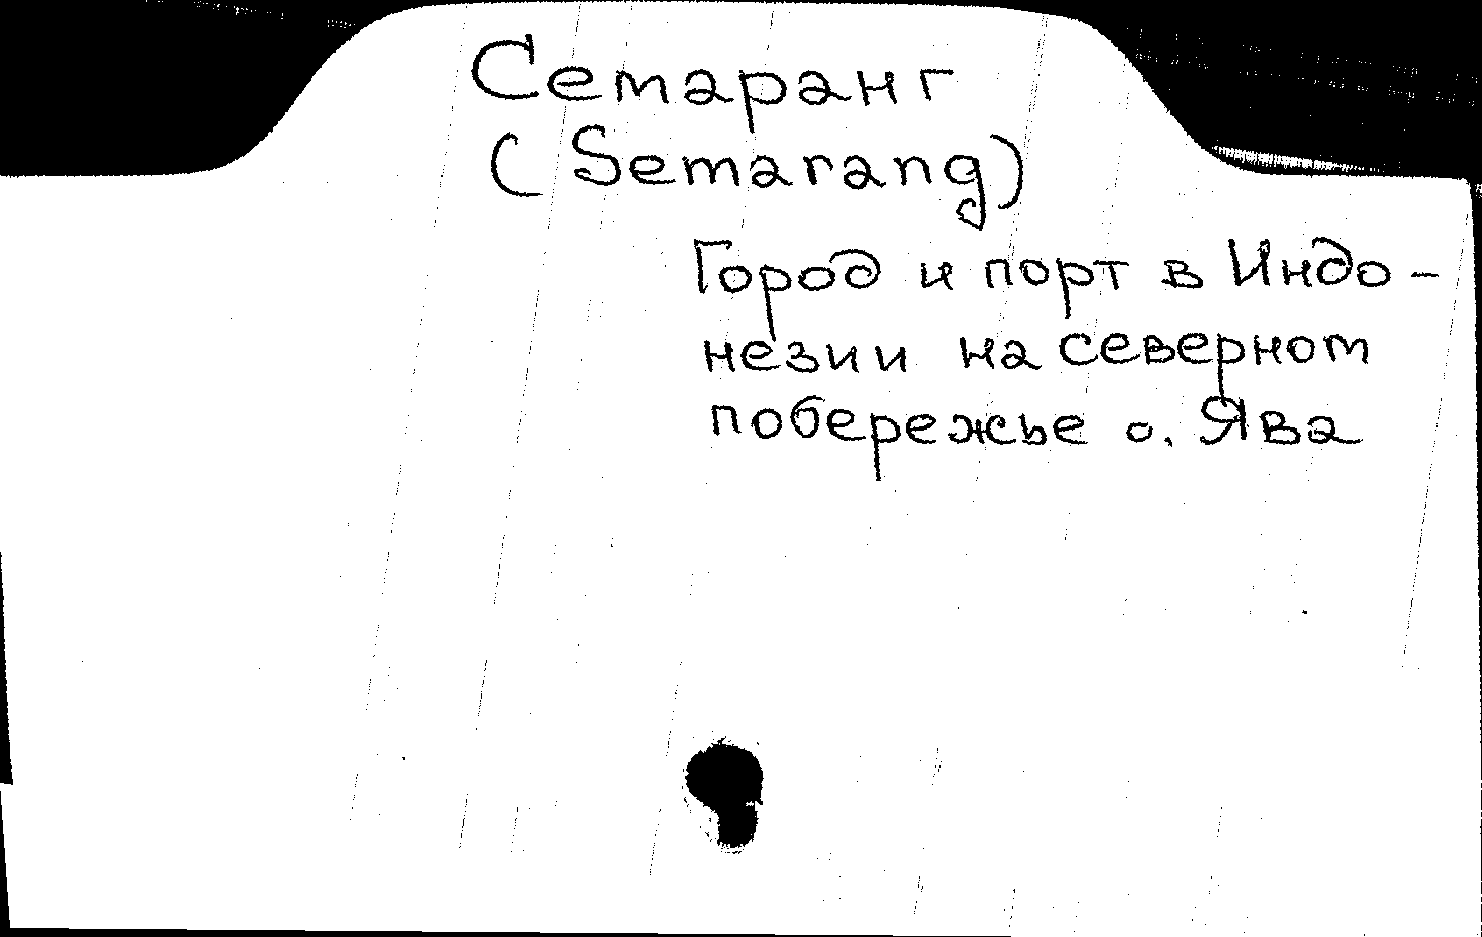 Семаранг
(Semarang)
Город и порт в Индо-
незии на северном
побережье о. Ява